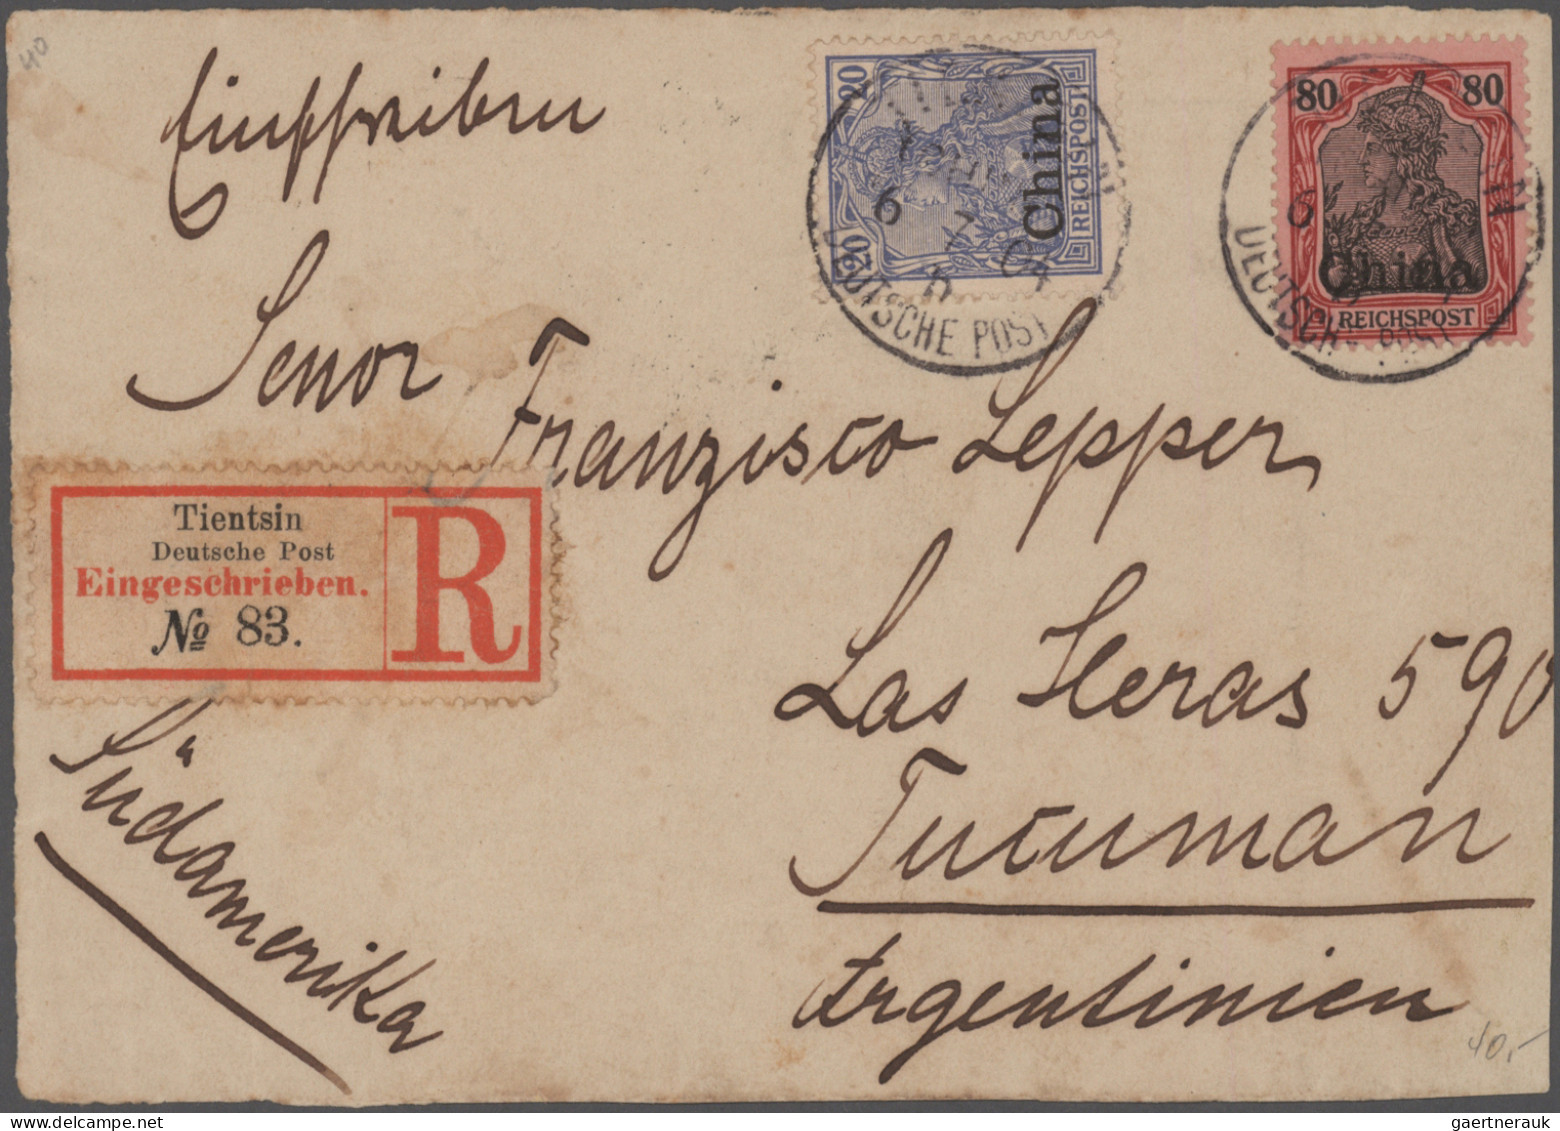 40
Einschreiben
20
20
China
REICHSPOST
6 7 04
DEUTSCHE POST
80 80
China
REICHSPOST
6
DEUTSCHE POST
Senor
Franzisco Lepper
Tientsin
Deutsche Post
Eingeschrieben.
№ 83.
R
Las Heras 590
Tucuman
Südamerika
Argentinien
40,-
gaertnerauk